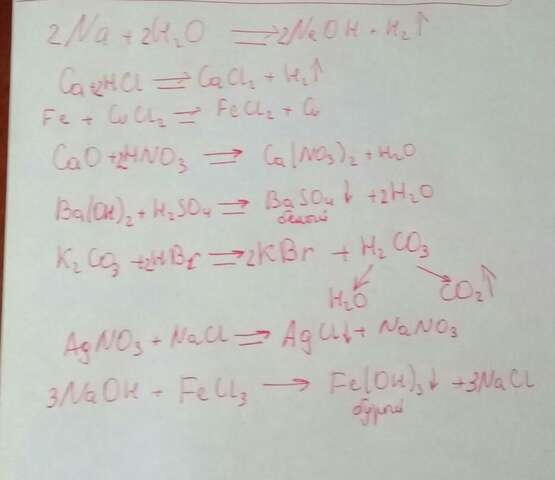 2Na + 2H₂O ⇒ 2NaOH + H₂↑
Ca + 2HCl ⇒ CaCl₂ + H₂↑
Fe + CuCl₂ ⇒ FeCl₂ + Cu
CaO + 2HNO₃ ⇒ Ca(NO₃)₂ + H₂O
Ba(OH)₂ + H₂SO₄ ⇒ BaSO₄↓ + 2H₂O
белый
K₂CO₃ + 2HBr ⇒ 2KBr + H₂CO₃
H₂O CO₂↑
AgNO₃ + NaCl ⇒ AgCl↓ + NaNO₃
3NaOH + FeCl₃ → Fe(OH)₃↓ + 3NaCl
бурый